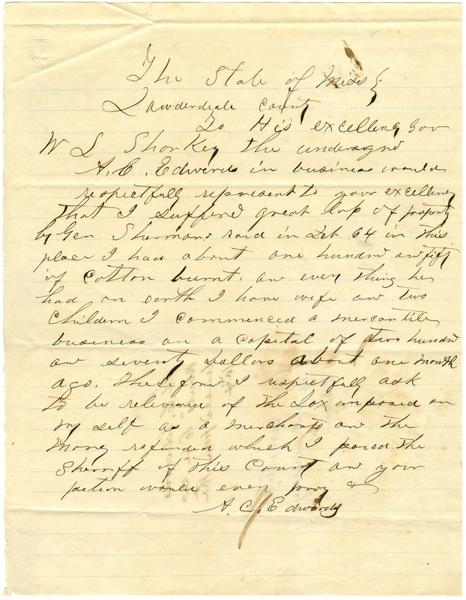 The State of Miss }
Lawderdale County
To His excellency Gov
W L Sharkey the undersignd
A. C. Edwards in business would
respectfully represent to your excellency
that I sufferd great loss of property
by Gen Shermans raid in Feb 64 in this
place I had about one hundred an fifty
of cotton burnt. an every thing he
had on earth I have wife an two
children I commenced a mercantile
business on a capital of two hundred
an seventy dollars about one month
ago. Therefore I respectfully ask
to be releived of the tax imposed on
my self as a merchant an the
money refunded which I paid the
Sheriff of this County an your
petion would ever pray &
A. C. Edwards